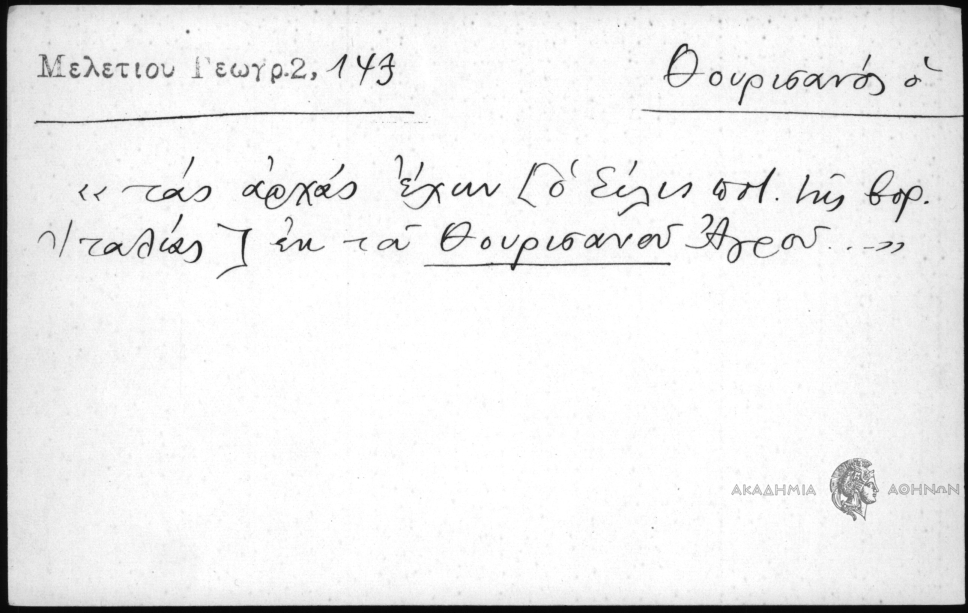 Μελετίου Γεωγρ.2, 143
Θουρισανός ὁ
« τάς ἀρχάς ἔχων [ὁ Σίλις ποτ. τῆς βορ.
Ἰταλίας] ἐκ τοῦ Θουρισανοῦ Ἀγροῦ...»
ΑΚΑΔΗΜΙΑ ΑΘΗΝΩΝ